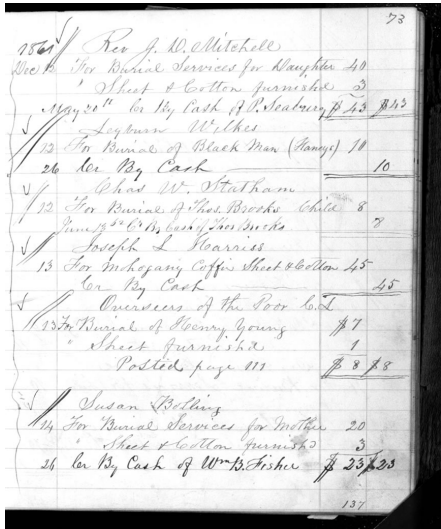 73
1861 Rev J. D. Mitchell
Dec 12 For Burial Services for Daughter 40
" Sheet & Cotton furnished 3
May 20th Cr By Cash of P. Seabury $43 $43
Seyburn Wilkes
12 For Burial of Black Man (Haneys) 10
26 Cr By Cash 10
Chas W. Statham
12 For Burial of Thos. Brooks Child 8
June 13th Cr By Cash of Thos Brooks 8
Joseph L Harriss
13 For Mohogany Coffin Sheet & Cotton 45
Cr By Cash 45
Overseers of the Poor C.L
13 For Burial of Henry Young $7
" Sheet furnishd 1
Posted page 111 $8 $8
Susan Bolling
14 For Burial Services for Mother 20
" Sheet & Cotton furnishd 3
26 Cr By Cash of Wm B. Fisher $23 $23
137